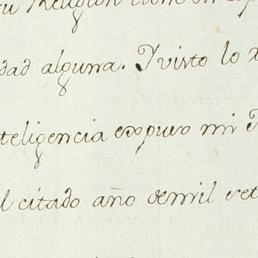 su Religion
dad alguna. Y visto lo
teligencia expuso mi
l citado año demil set